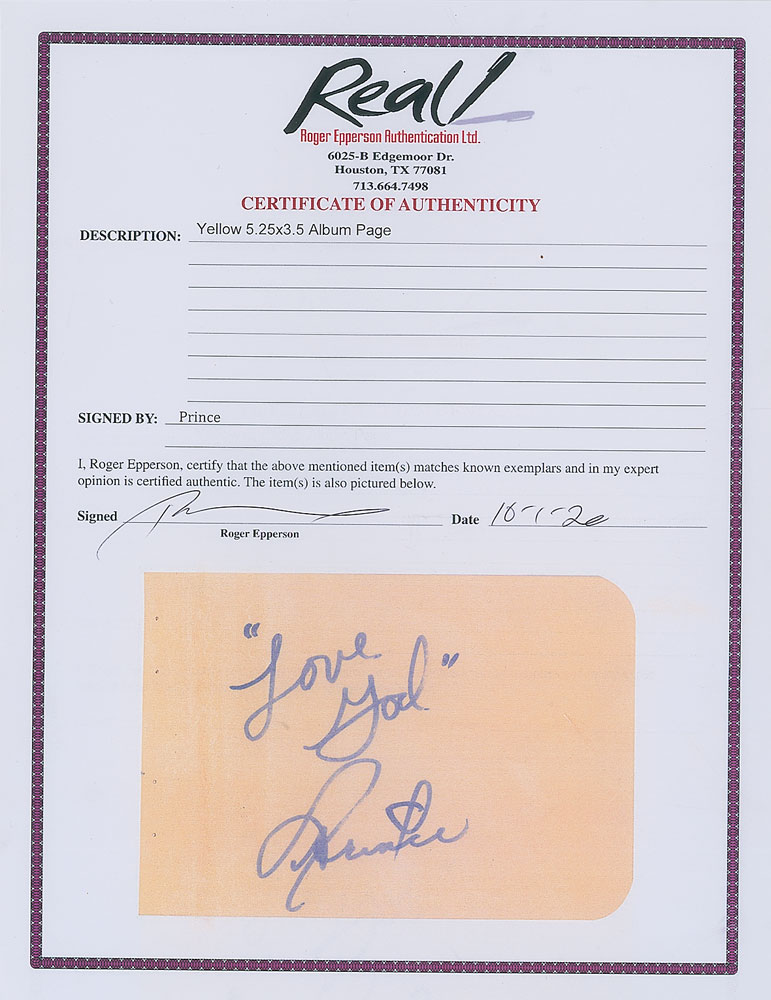 Real!
Roger Epperson Authentication Ltd.
6025-B Edgemoor Dr.
Houston, TX 77081
713.664.7498
CERTIFICATE OF AUTHENTICITY
DESCRIPTION: Yellow 5.25x3.5 Album Page
SIGNED BY: Prince
I, Roger Epperson, certify that the above mentioned item(s) matches known exemplars and in my expert
opinion is certified authentic. The item(s) is also pictured below.
Signed Date 10-1-20
Roger Epperson
"Love
God"
Prince